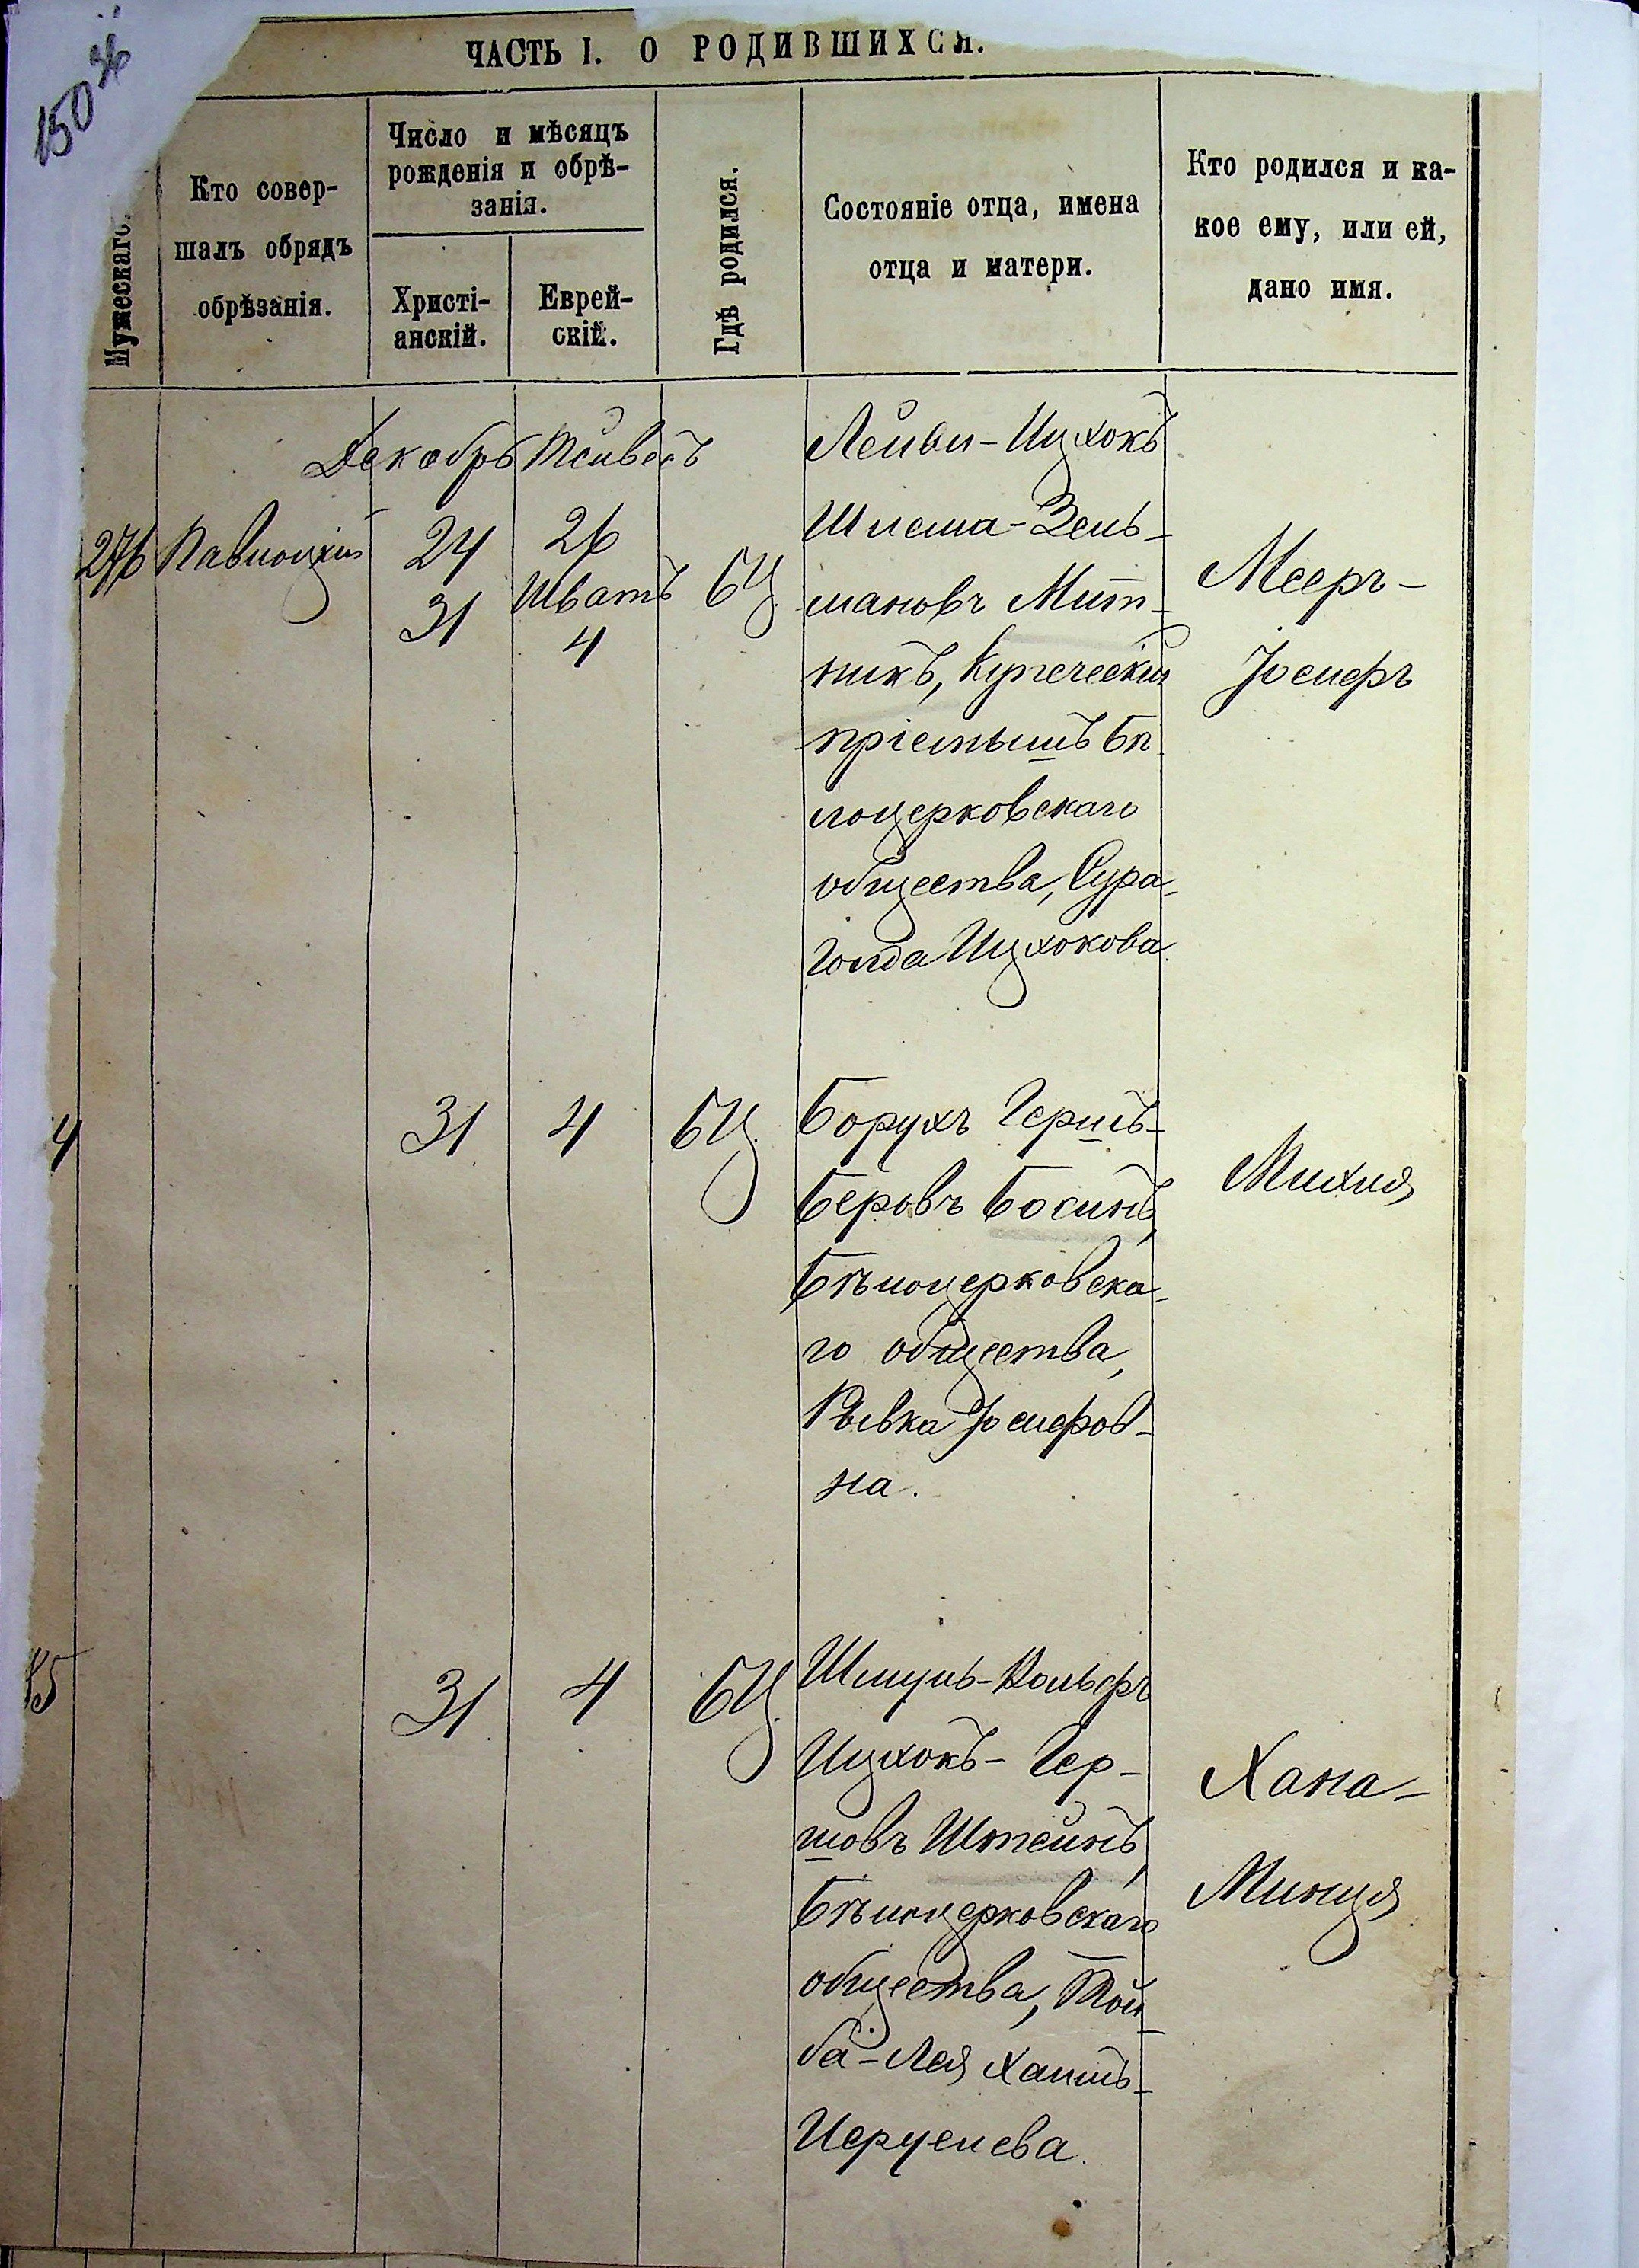 150 зв
ЧАСТЬ I. О РОДИВШИХСЯ.
Мужескаго.
Кто совер-
шалъ обрядъ
обрѣзанія.
Число и мѣсяцъ
рожденія и обрѣ-
занія.
Христі-
анскій.
Еврей-
скій.
Гдѣ родился.
Состояніе отца, имена
отца и матери.
Кто родился и ка-
кое ему, или ей,
дано имя.
Декабрь Тейвесъ
276
24
31
26
Шватъ
4
БЦ.
Лейви-Ицхокъ
Шлема-Зель-
мановъ Мит-
никъ, Купеческій
пріемышъ Бѣ
лоцерковскаго
общества, Сура-
Голда Ицхокова.
Мееръ-
Іосифъ
4
31
4
БЦ.
Борухъ Гершъ-
Беровъ Босинъ,
Бѣлоцерковска-
го общества,
Рывка Іосифов-
на.
Михля
85
31
4
БЦ.
Шмуль-Вольфъ
Ицхокъ-Гер-
шовъ Штейнъ,
Бѣлоцерковскаго
общества, Той-
ба-Лея Хаимъ-
Исрулева.
Хана-
Минця